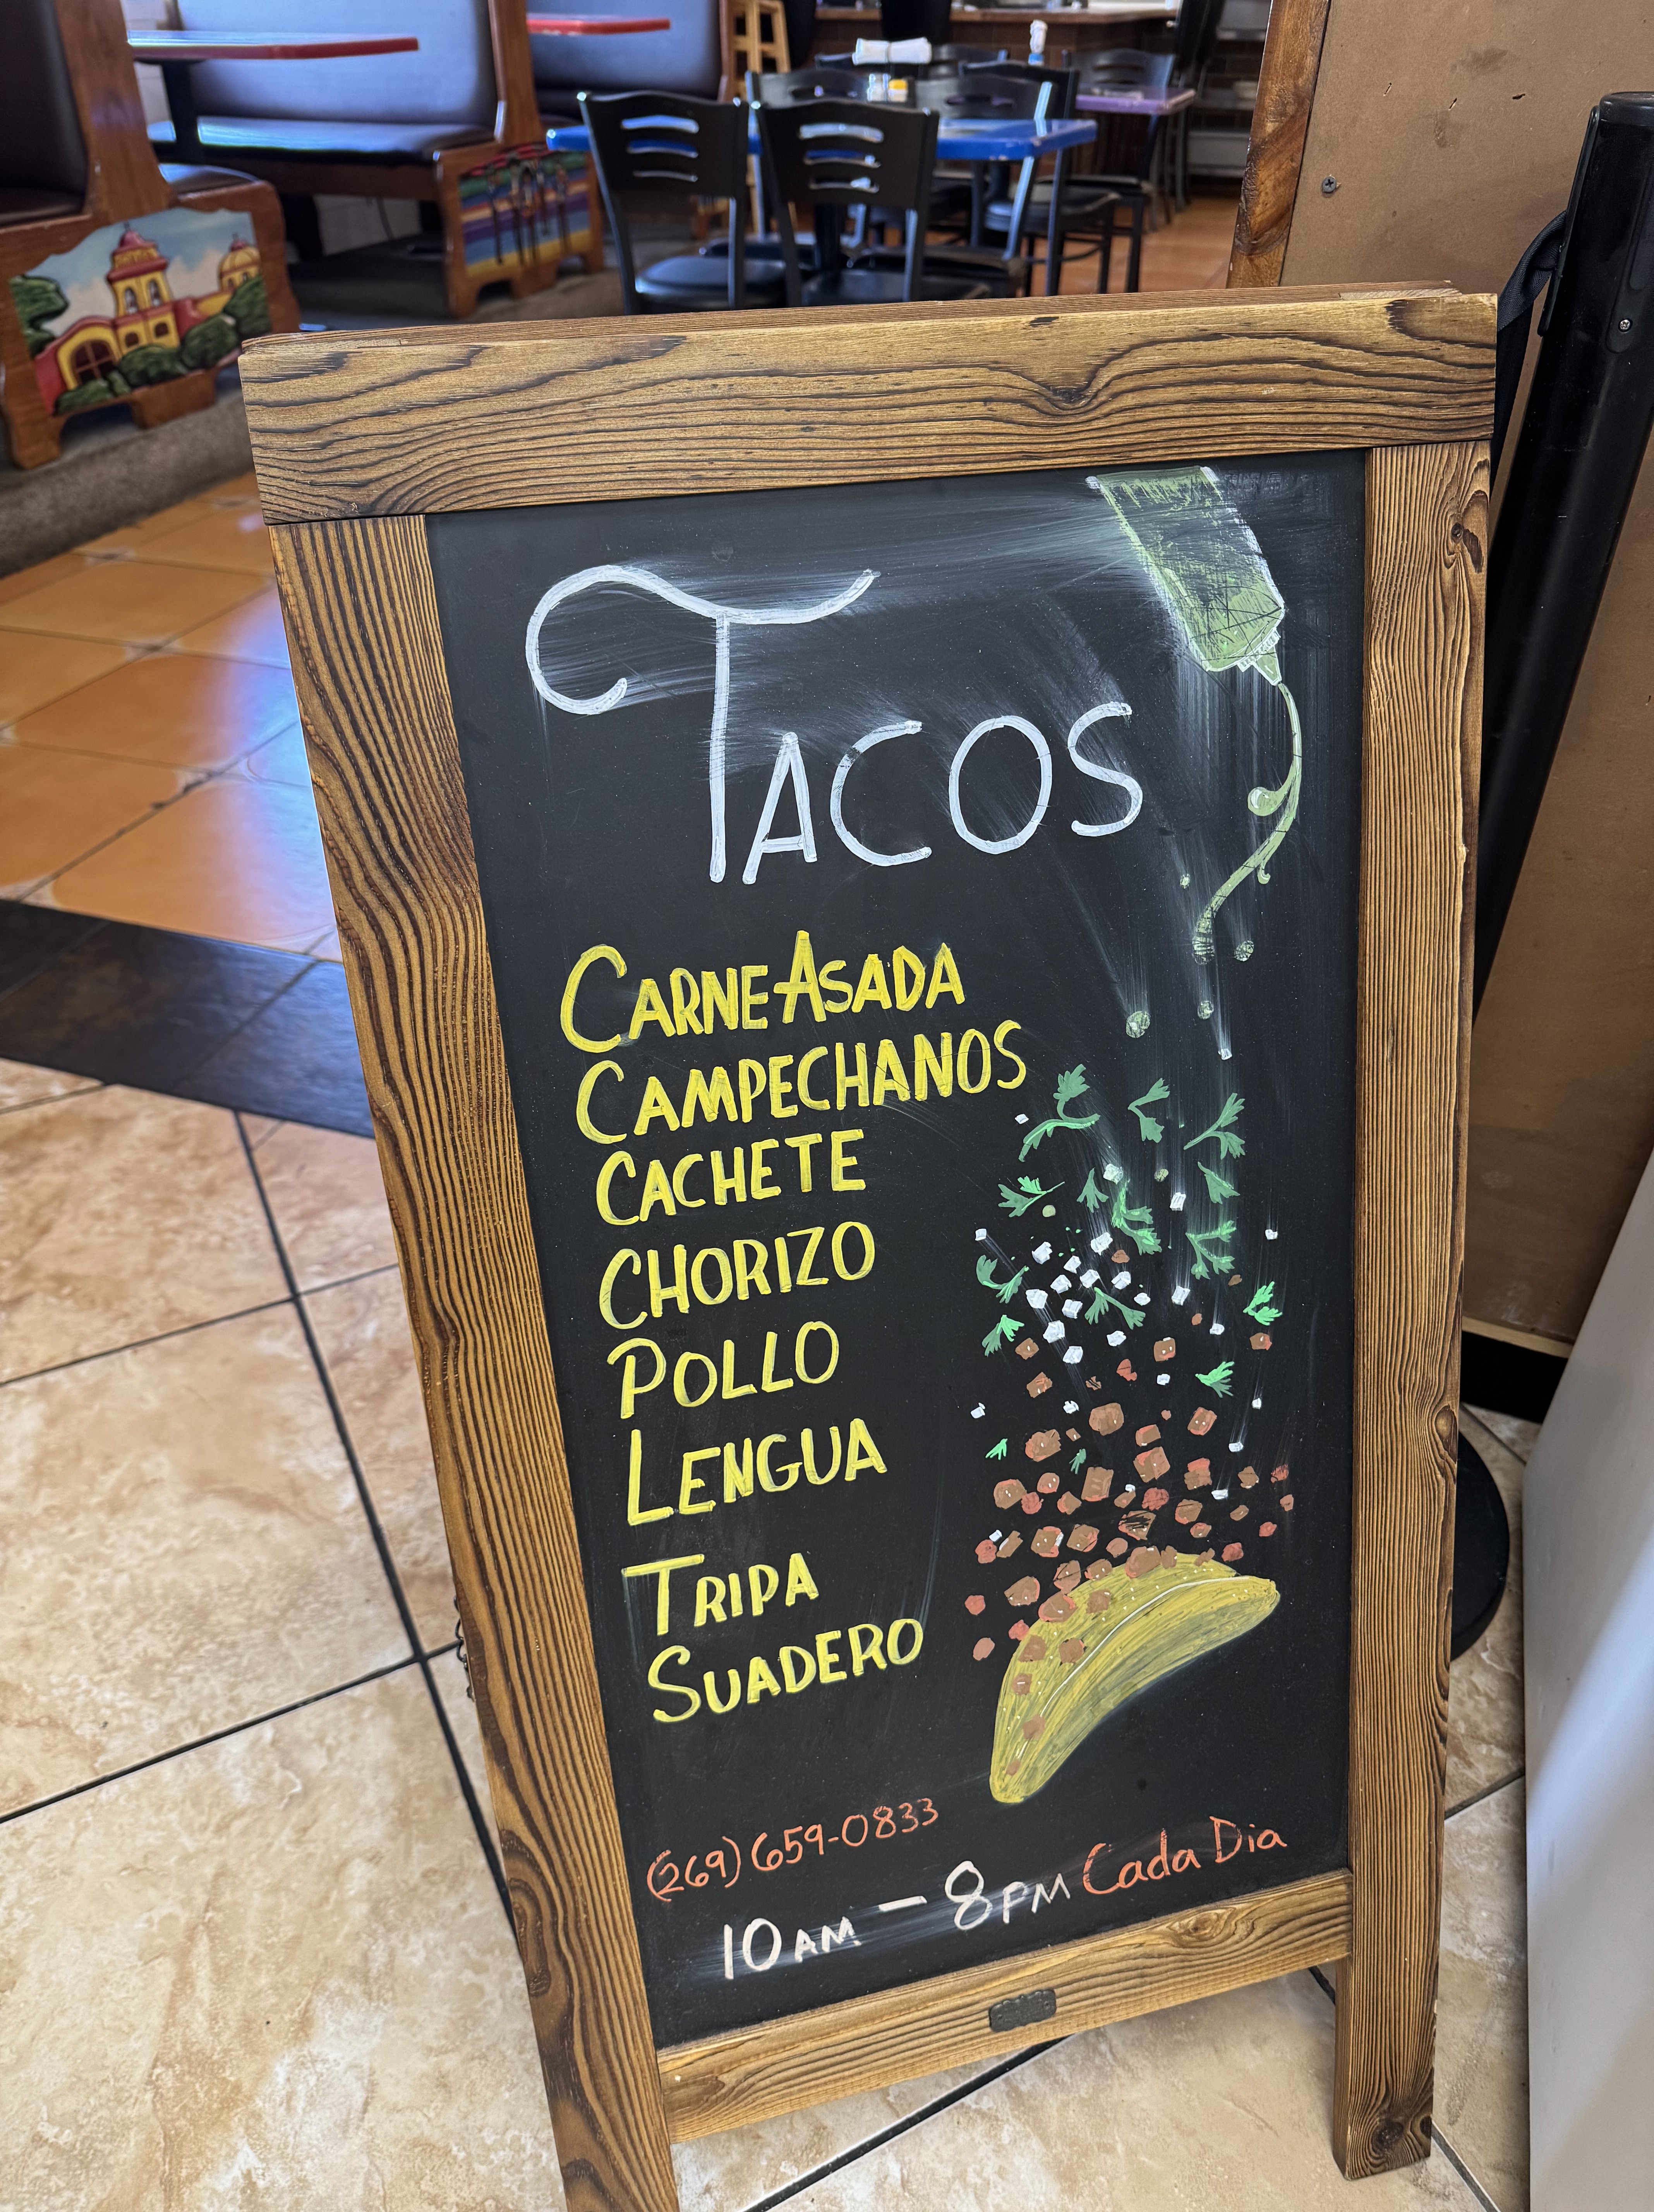 TACOS
CARNE ASADA
CAMPECHANOS
CACHETE
CHORIZO
POLLO
LENGUA
TRIPA
SUADERO
(269) 659-0833
10AM - 8PM Cada Dia